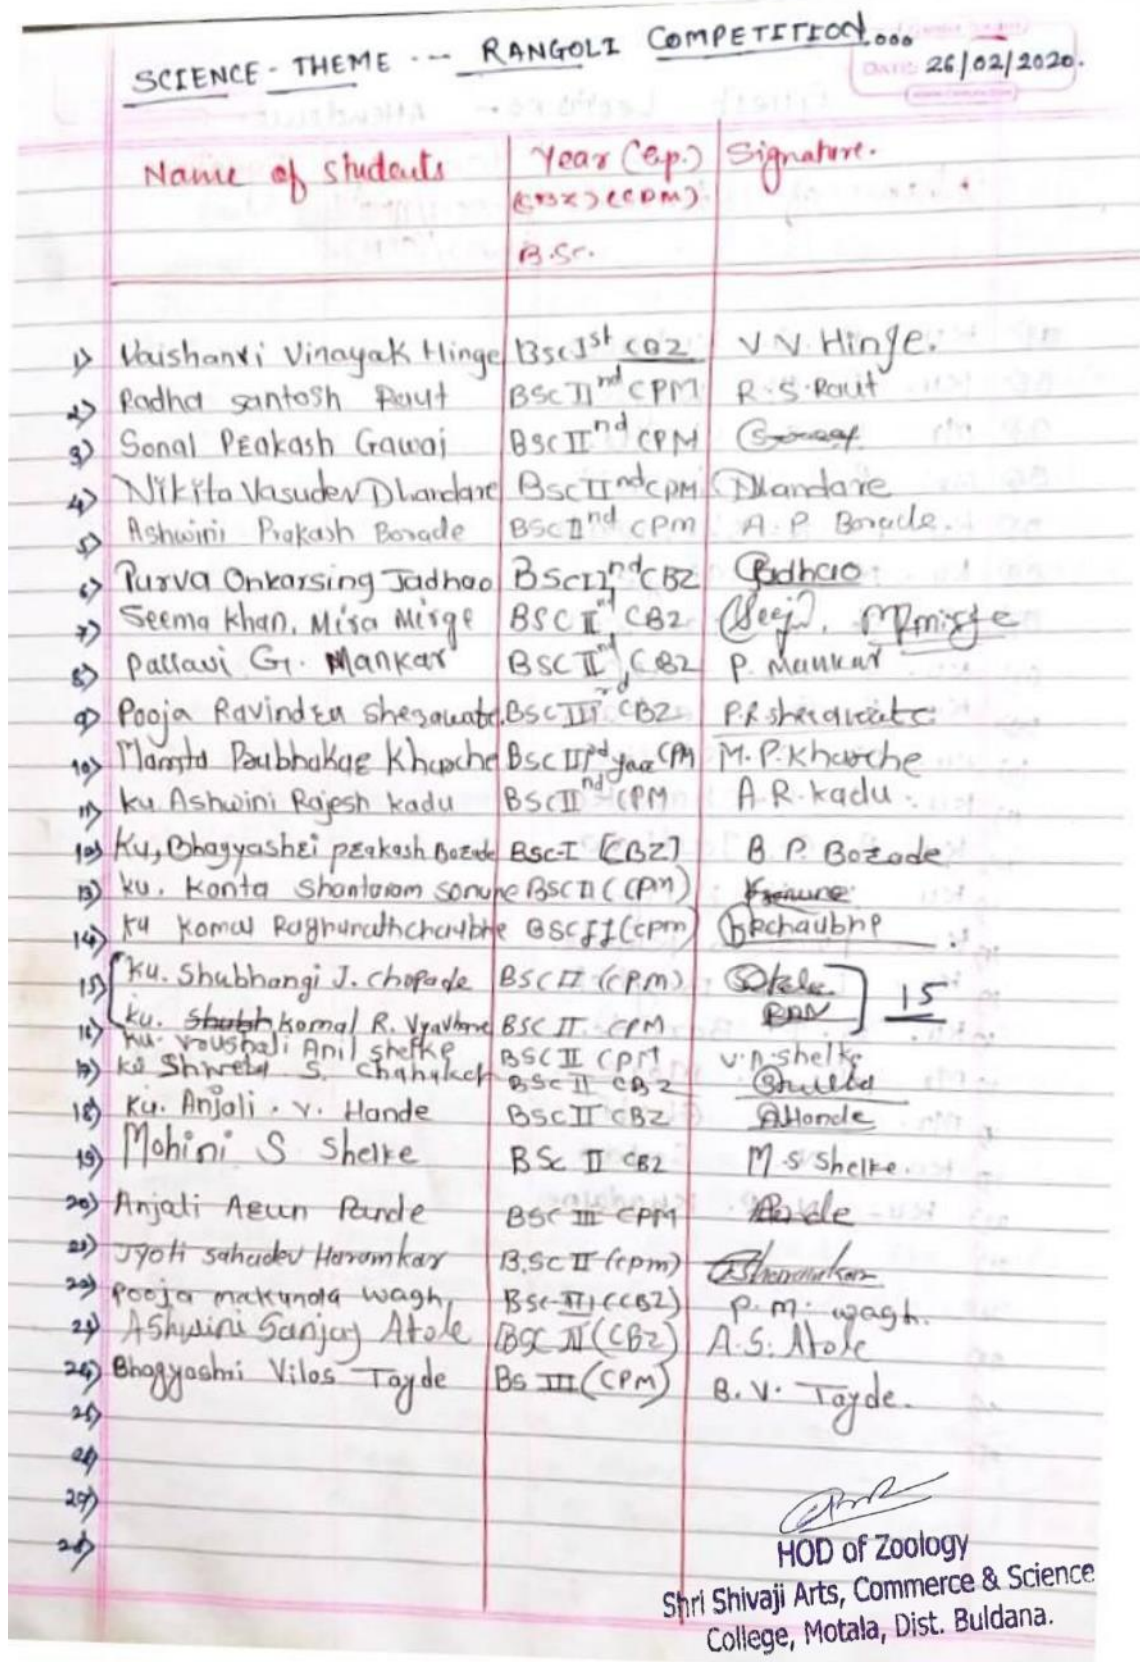 SCIENCE - THEME --- RANGOLI COMPETITION...
DATE: 26/02/2020.
Name of students Year (Gp.) Signature.
(CBZ) (CPM).
B.Sc.
1) Vaishanvi Vinayak Hinge BSc Ist CBZ V V. Hinge.
2) Radha santosh Raut BSC IInd CPM R. S. Raut
3) Sonal Prakash Gawai BSC IInd CPM
4) Nikita Vasudev Dhandare BSC IInd CPM Dhandare
5) Ashwini Prakash Borade BSC IInd CPM A. P Borade.
6) Purva Onkarsing Jadhao BSC IInd CBZ Jadhao
7) Seema Khan, Mira Mirge BSC IInd CBZ
8) Pallavi G. Mankar BSC IInd CBZ P. Mankar
9) Pooja Ravindra Sherawate. BSC IIIrd CBZ P.R sherawate
10) Mamta Prabhakar Kharche BSC IInd year CPM M. P. Kharche
11) Ku. Ashwini Rajesh Kadu BSC IInd CPM A. R. Kadu.
12) Ku, Bhagyashri prakash Borade BSC-I [CBZ] B. P. Borade
13) ku. Kanta Shantaram sonune BSC II (CPM) Ksonune
14) Ku Komal Raghunath chaubhe BSC II (CPM) chaubhe
15) Ku. Shubhangi J. Chopade BSC II (CPM) 15
16) Ku. Shubh Komal R. Vyavhare BSC II CPM
Ku. Vaushali Anil Shelke BSC II CPM V. A. Shelke
17) Ku Shweta S. BSC II CBZ
18) Ku. Anjali. V. Hande BSC II CBZ AHande
19) Mohini S Shelke BSc II CBZ M S Shelke.
20) Anjali Arun Pande BSC III CPM Pande
21) Jyoti Sahadev Haramkar B.SC II (CPM)
22) Pooja makunda wagh, BSC-III (CBZ) P. M. wagh.
23) Ashwini Sanjay Atole BSC II (CBZ) A. S. Atole
24) Bhagyashri Vilas Tayde BS III (CPM) B. V. Tayde.
25)
26)
27)
28)
HOD of Zoology
Shri Shivaji Arts, Commerce & Science
College, Motala, Dist. Buldana.